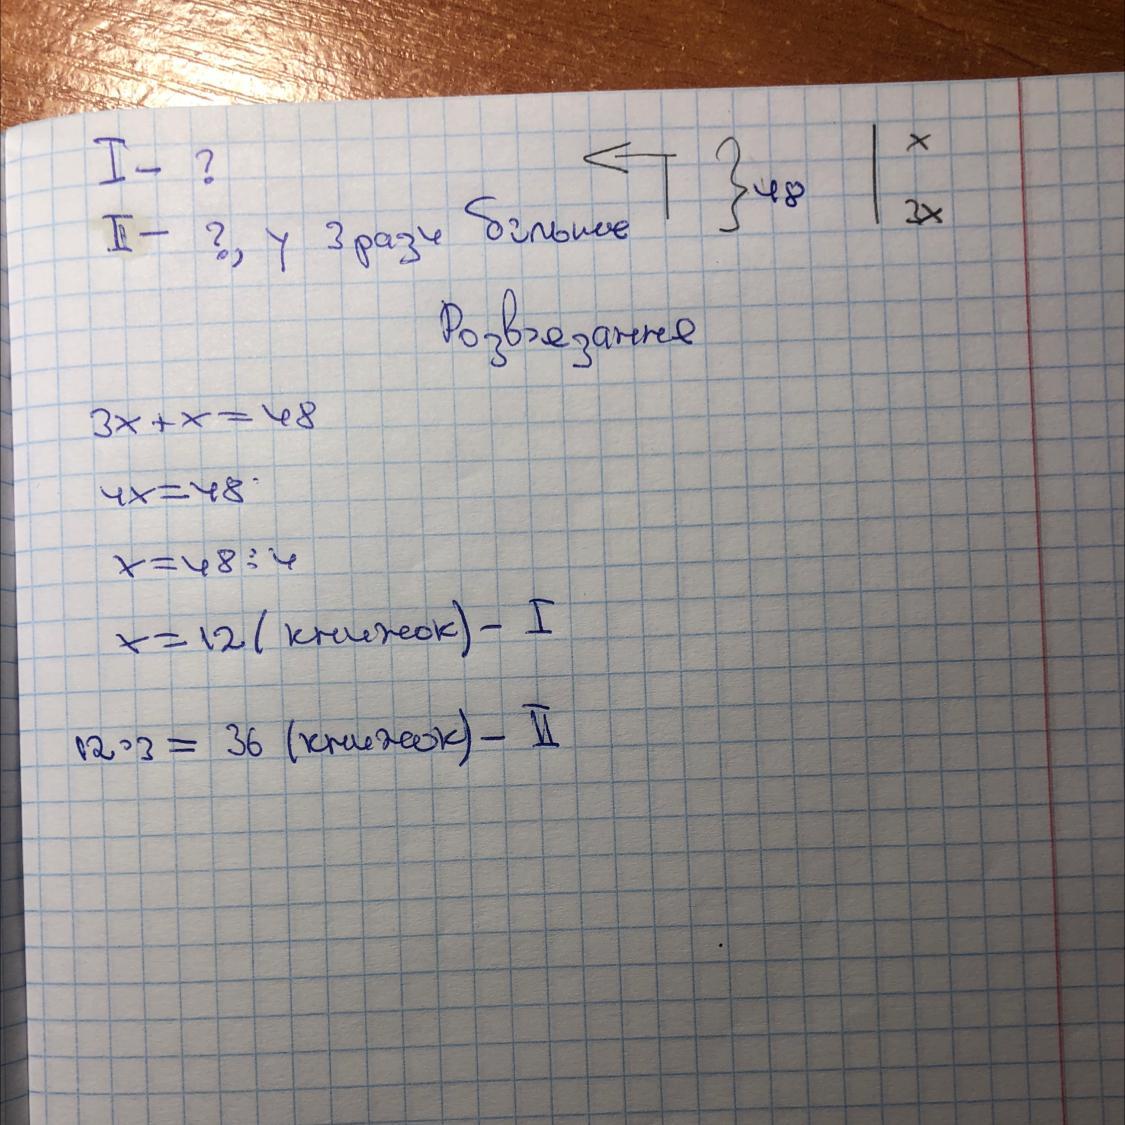 I - ?
II - ?, у 3 рази більше
} 48
x
3x
Розв'язання
3x + x = 48
4x = 48
x = 48 : 4
x = 12 (книжок) - I
12 · 3 = 36 (книжок) - II